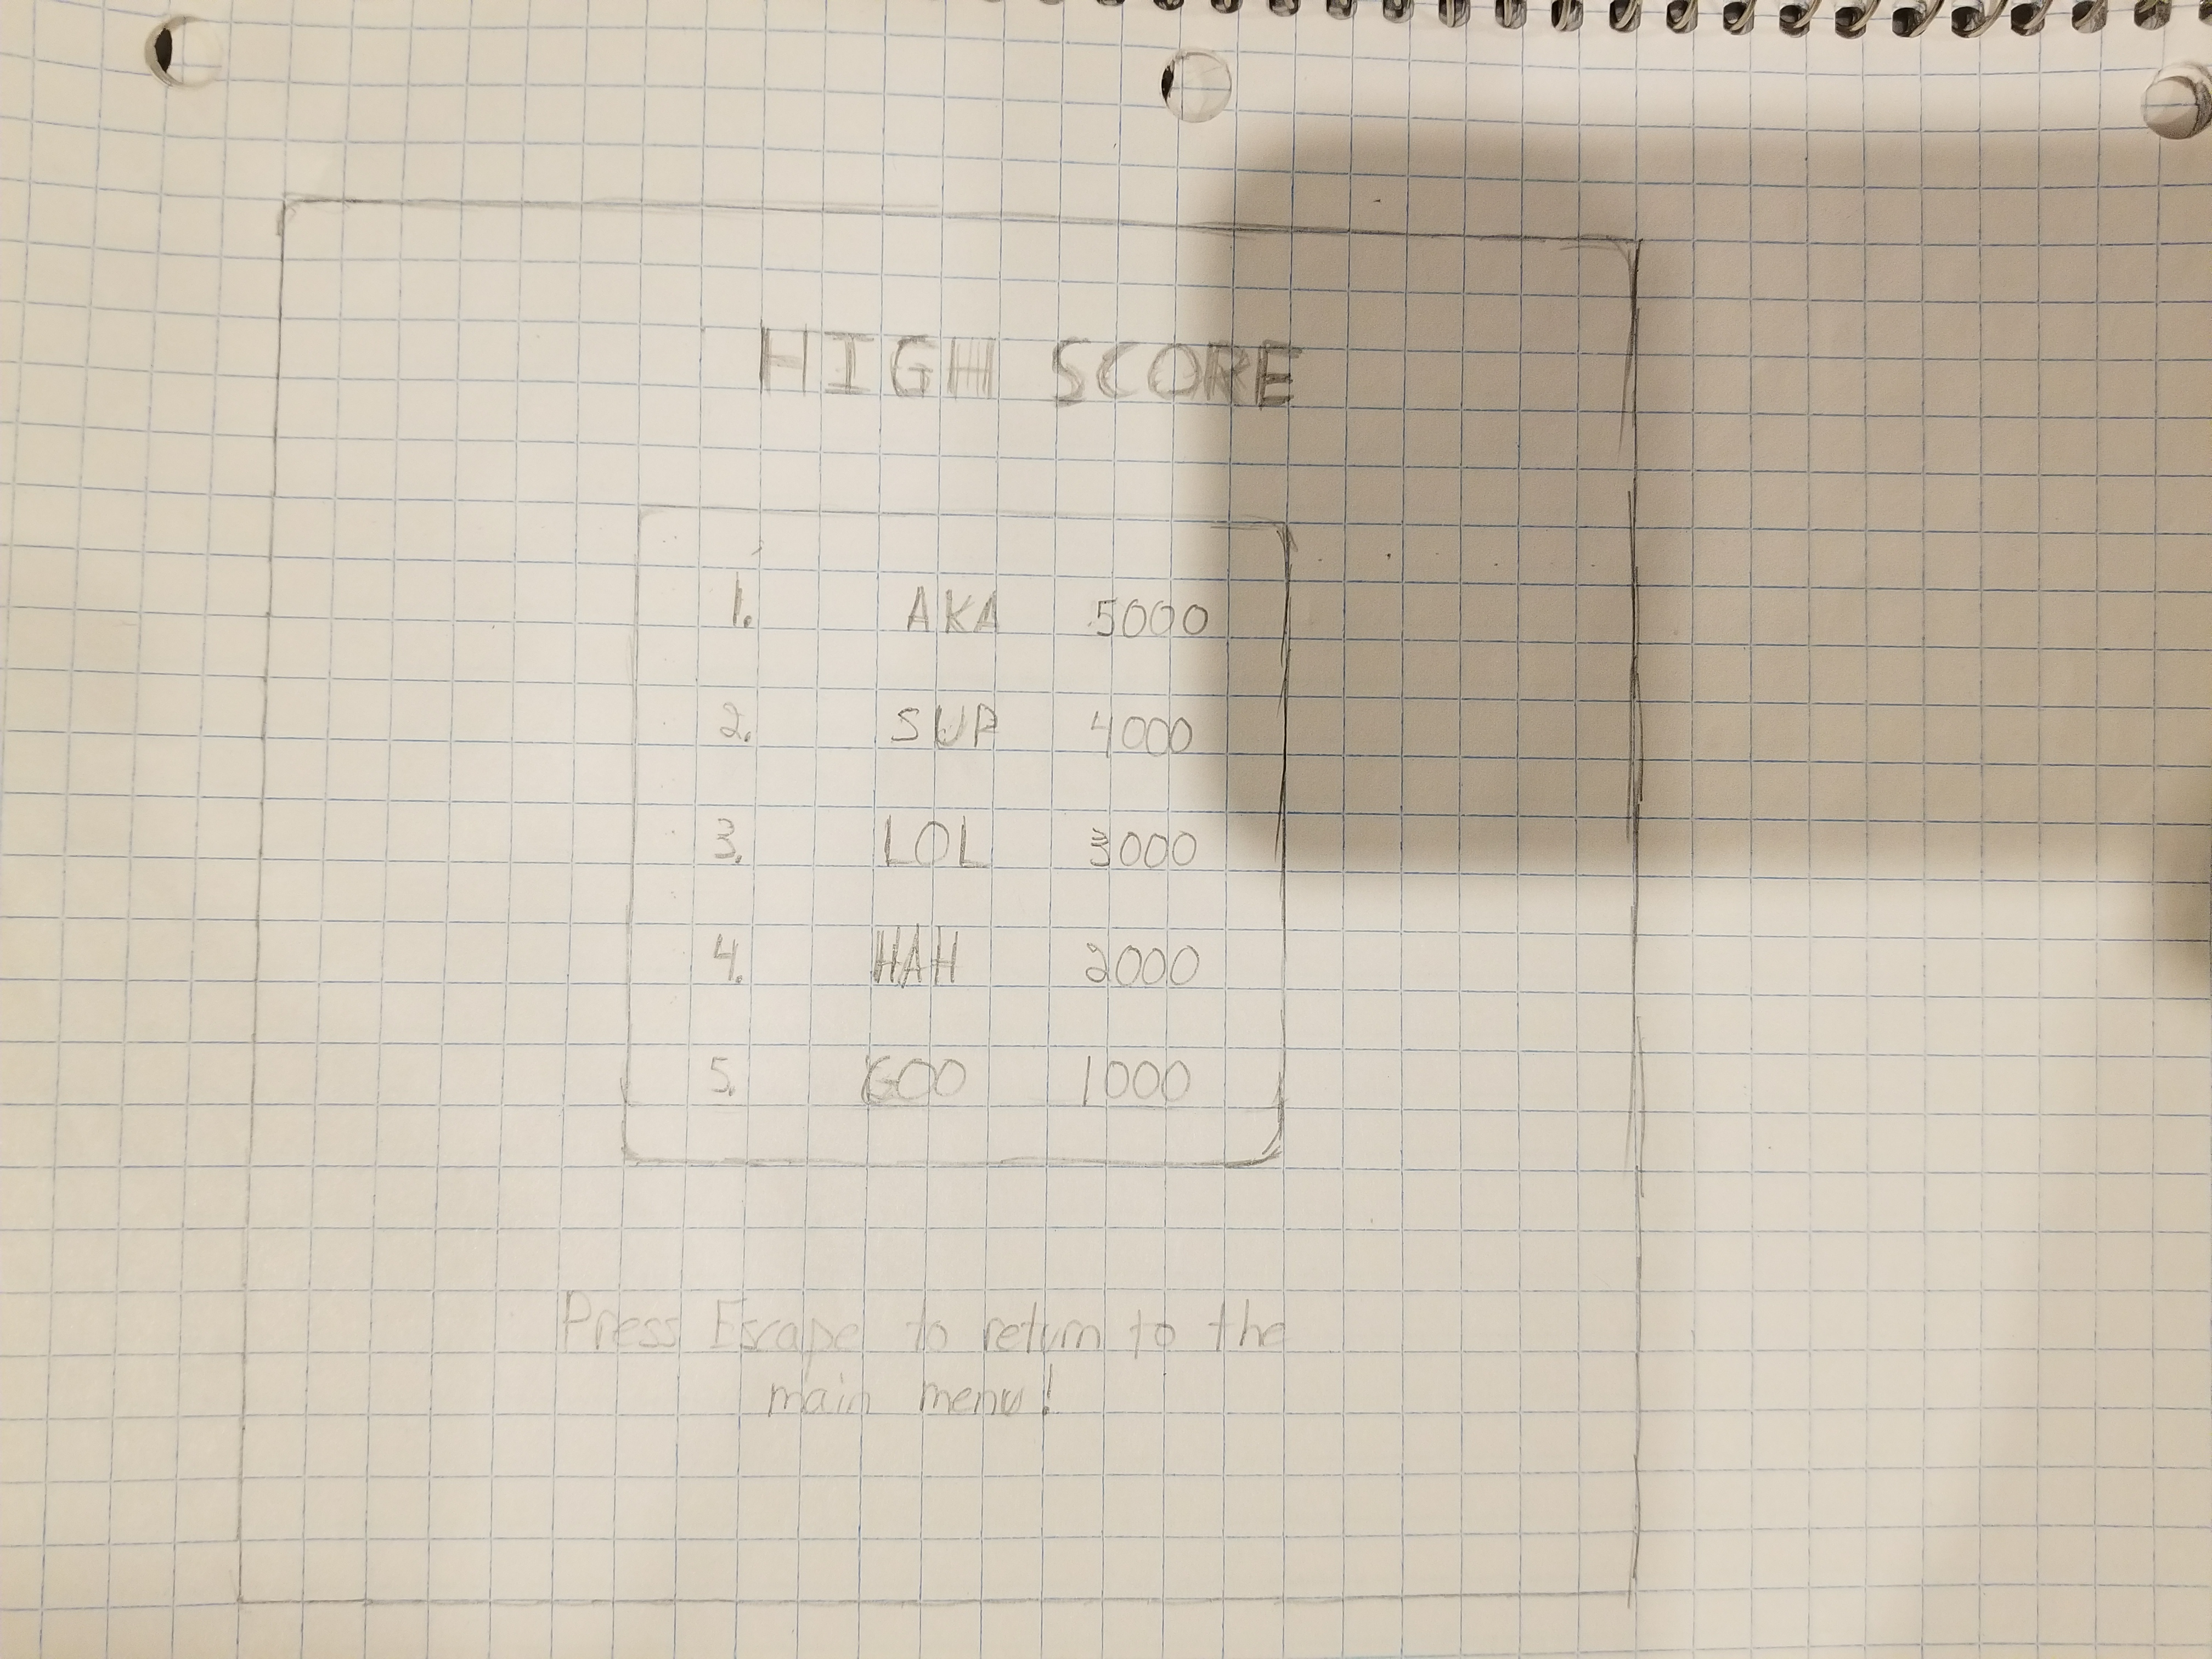 HIGH SCORE
1. AKA 5000
2. SUP 4000
3. LOL 3000
4. HAH 2000
5. GOO 1000
Press Escape to return to the
main menu!